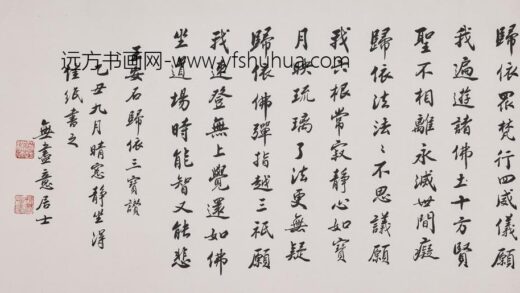 歸依眾梵行四威儀願
我遍遊諸佛土十方賢
聖不相離永滅世間癡
歸依法法〻不思議願
我六根常寂靜心如寶
月映琉璃了法更無疑
歸依佛彈指越三祇願
我速登無上覺還如佛
坐道場時能智又能悲
王安石歸依三寶讚
乙丑九月晴窓靜坐得
佳紙書之
無盡意居士
远方书画网-www.yfshuhua.com